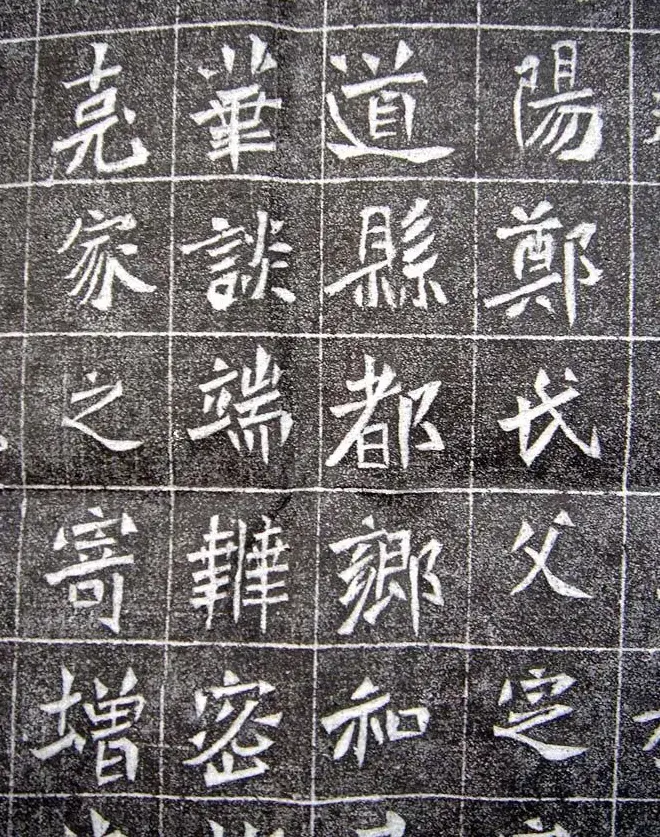 陽鄭氏父定
道縣都鄉和
華談端韡密
克家之寄增